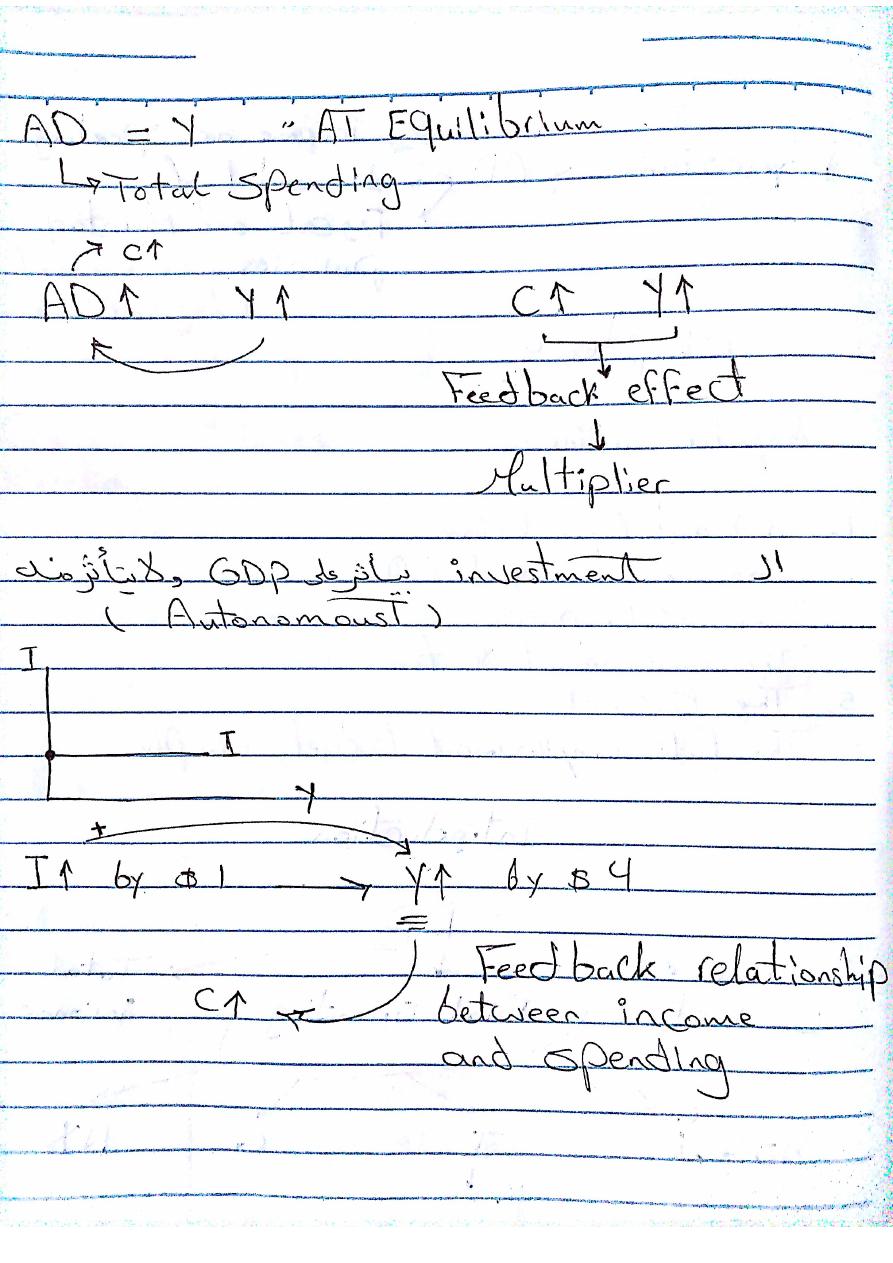 AD = Y " AT Equilibrium
↳ Total Spending
↗ C↑
AD ↑ Y ↑ C↑ Y↑
Feedback effect
↓
Multiplier
الـ investment بيأثر على GDP ولا يتأثر منه
( Autonomous )
I
I
Y
+
I↑ by $ 1 → Y↑ by $ 4
C↑
Feedback relationship
between income
and spending